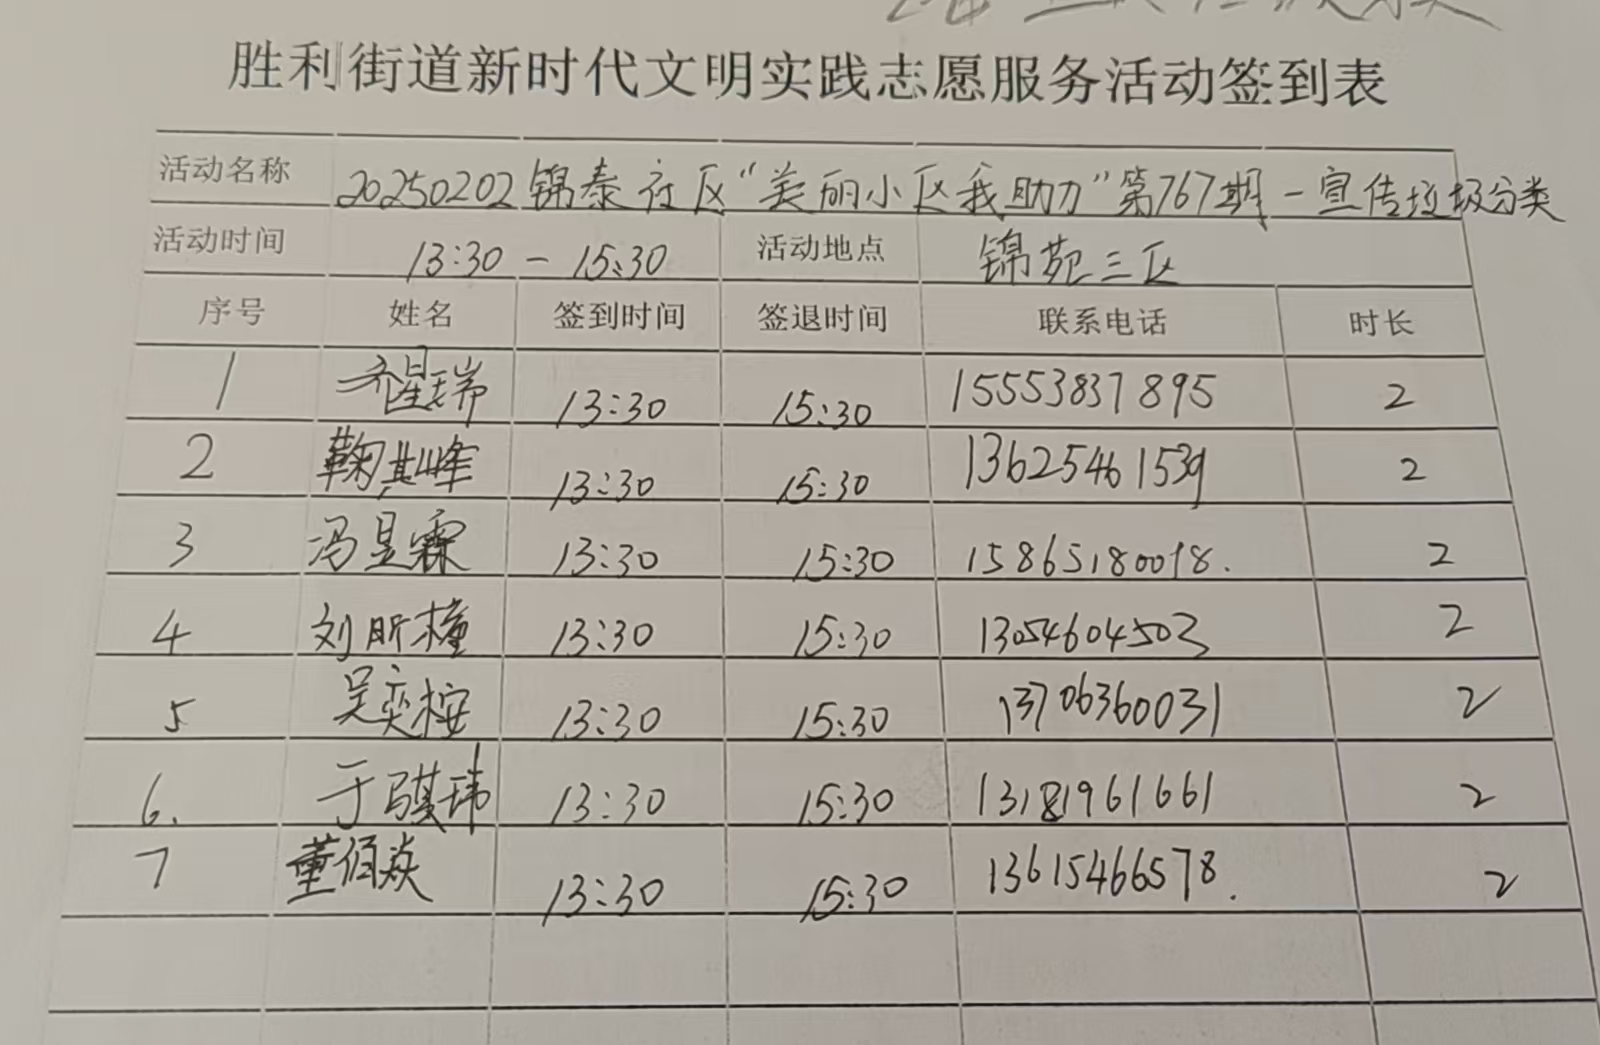 胜利街道新时代文明实践志愿服务活动签到表
活动名称 20250202锦泰社区“美丽小区我助力”第767期-宣传垃圾分类
活动时间 13:30 - 15:30 活动地点 锦苑三区
序号 姓名 签到时间 签退时间 联系电话 时长
1 齐星瑞 13:30 15:30 15553837895 2
2 鞠其峰 13:30 15:30 13625461539 2
3 冯昱霖 13:30 15:30 15865180098. 2
4 刘昕橦 13:30 15:30 13054604503 2
5 吴奕桉 13:30 15:30 13706360031 2
6. 于骐玮 13:30 15:30 13181961661 2
7 董佰焱 13:30 15:30 13615466578. 2